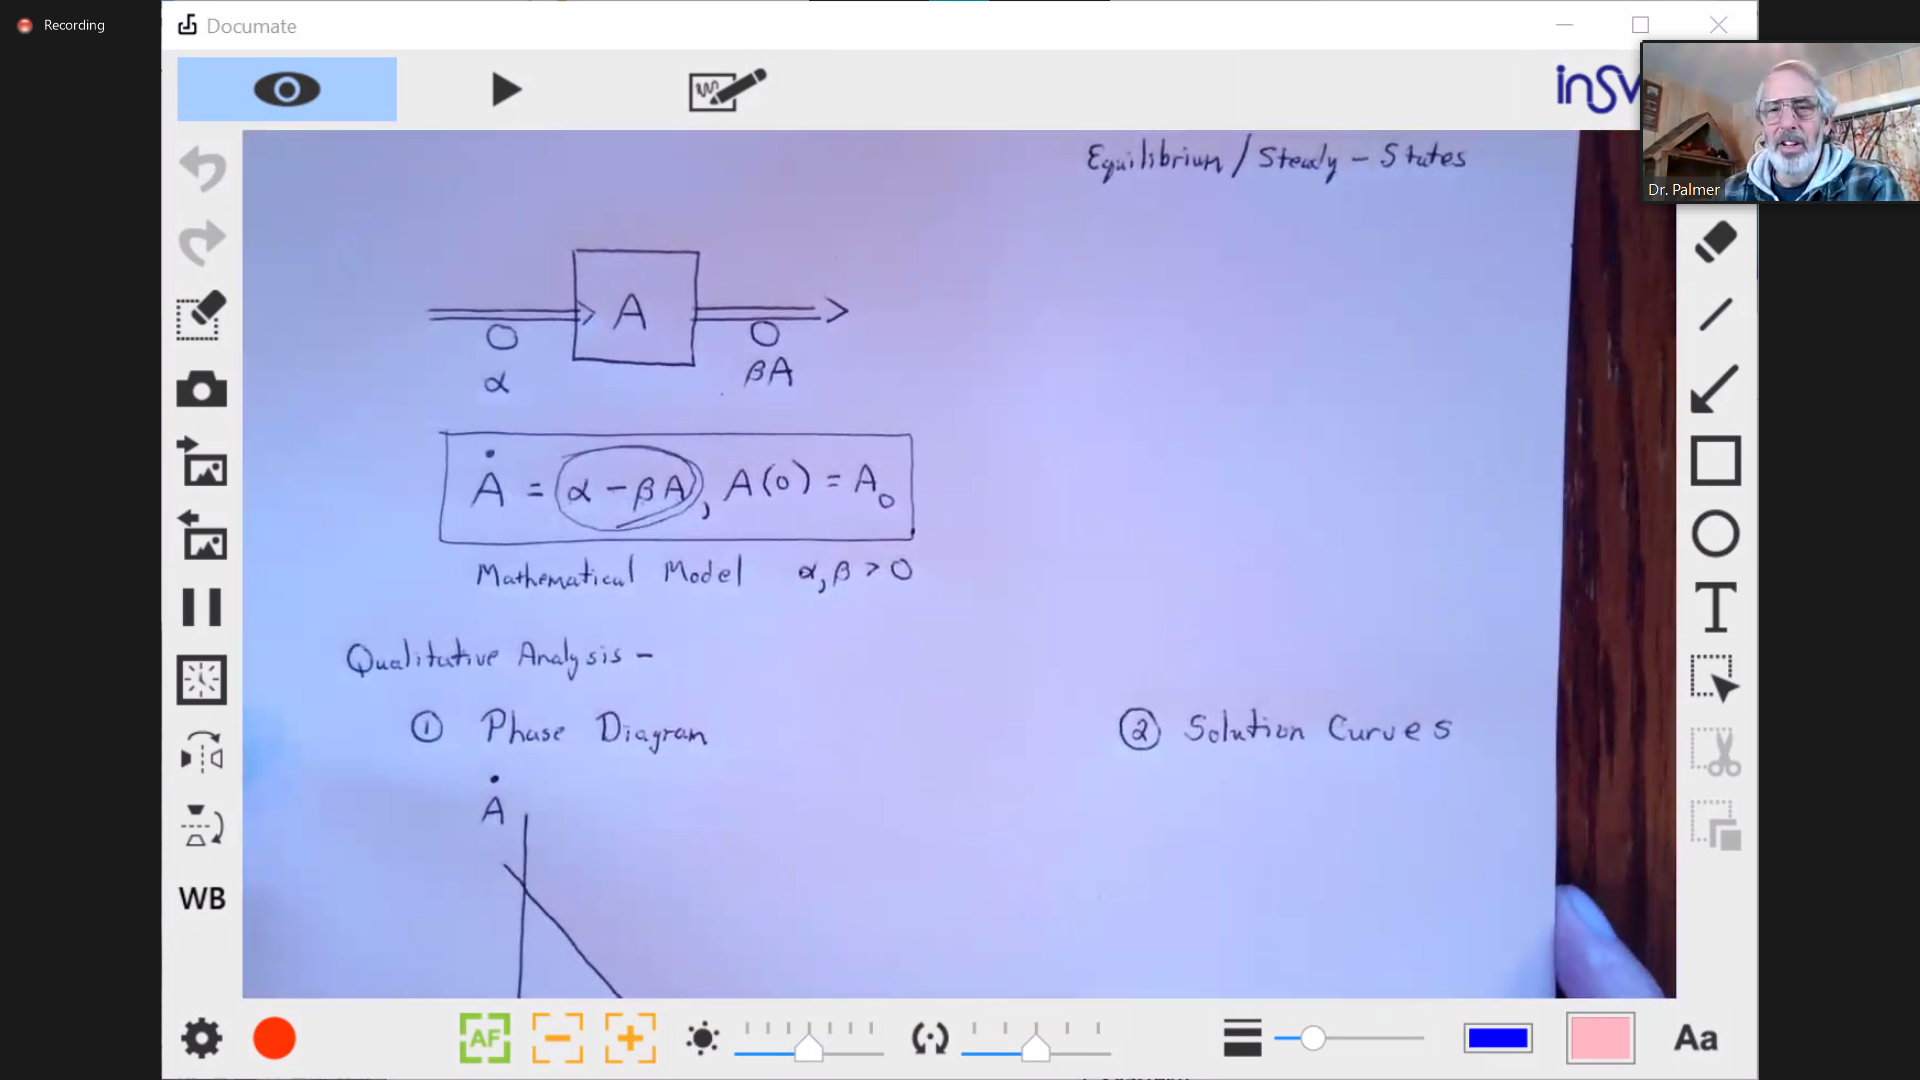 Recording
Documate
inSw
Dr. Palmer
Equilibrium / Steady - States
A
α
βA
Ȧ = α - βA, A(0) = A₀
Mathematical Model α, β > 0
Qualitative Analysis -
① Phase Diagram
② Solution Curves
Ȧ
WB
AF
T
Aa